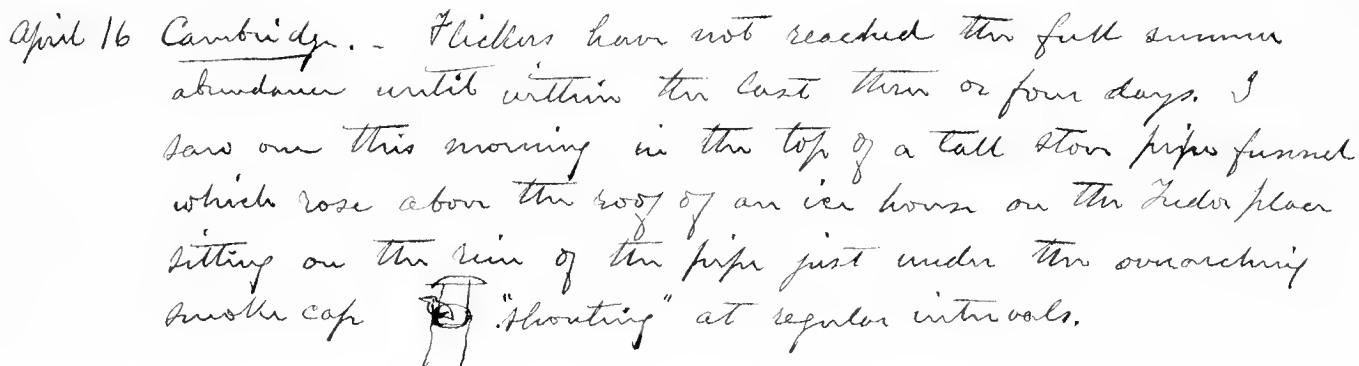 April 16 Cambridge. - Flickers have not reached the full summer
abundance until within the last three or four days. I
saw one this morning in the top of a tall stove pipe funnel
which rose above the roof of an ice house on the Tudor place
sitting on the rim of the pipe just under the overarching
smoke cap "shouting" at regular intervals.